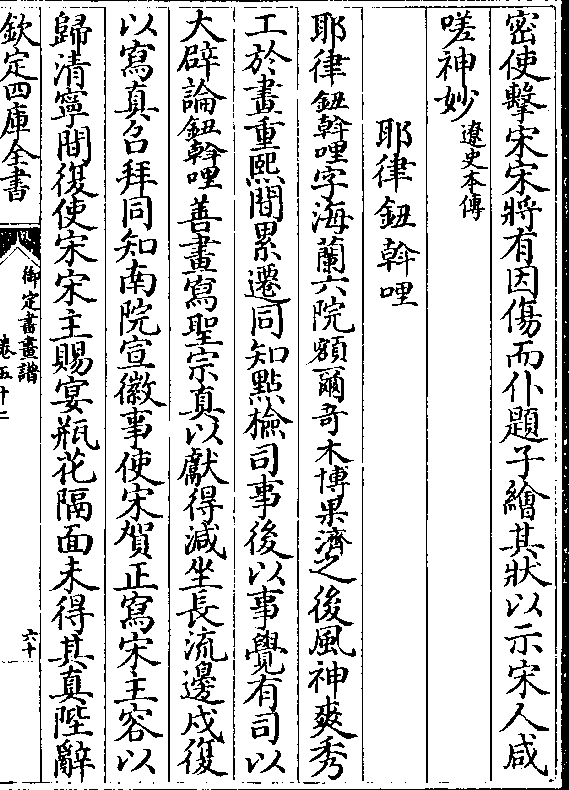 密使擊宋宋將有因傷而仆題子繪其狀以示宋人咸
嗟神妙遼史本傳
耶律鈕斡哩
耶律鈕斡哩字海蘭六院額爾奇木博果濟之後風神爽秀
工於畫重熙間累遷同知點檢司事後以事覺有司以
大辟論鈕斡哩善畫寫聖宗真以獻得減坐長流邊戍復
以寫真召拜同知南院宣徽事使宋賀正寫宋主容以
歸清寧間復使宋宋主賜宴瓶花隔面未得其真陛辭
欽定四庫全書
御定書畫譜
卷五十二
六十